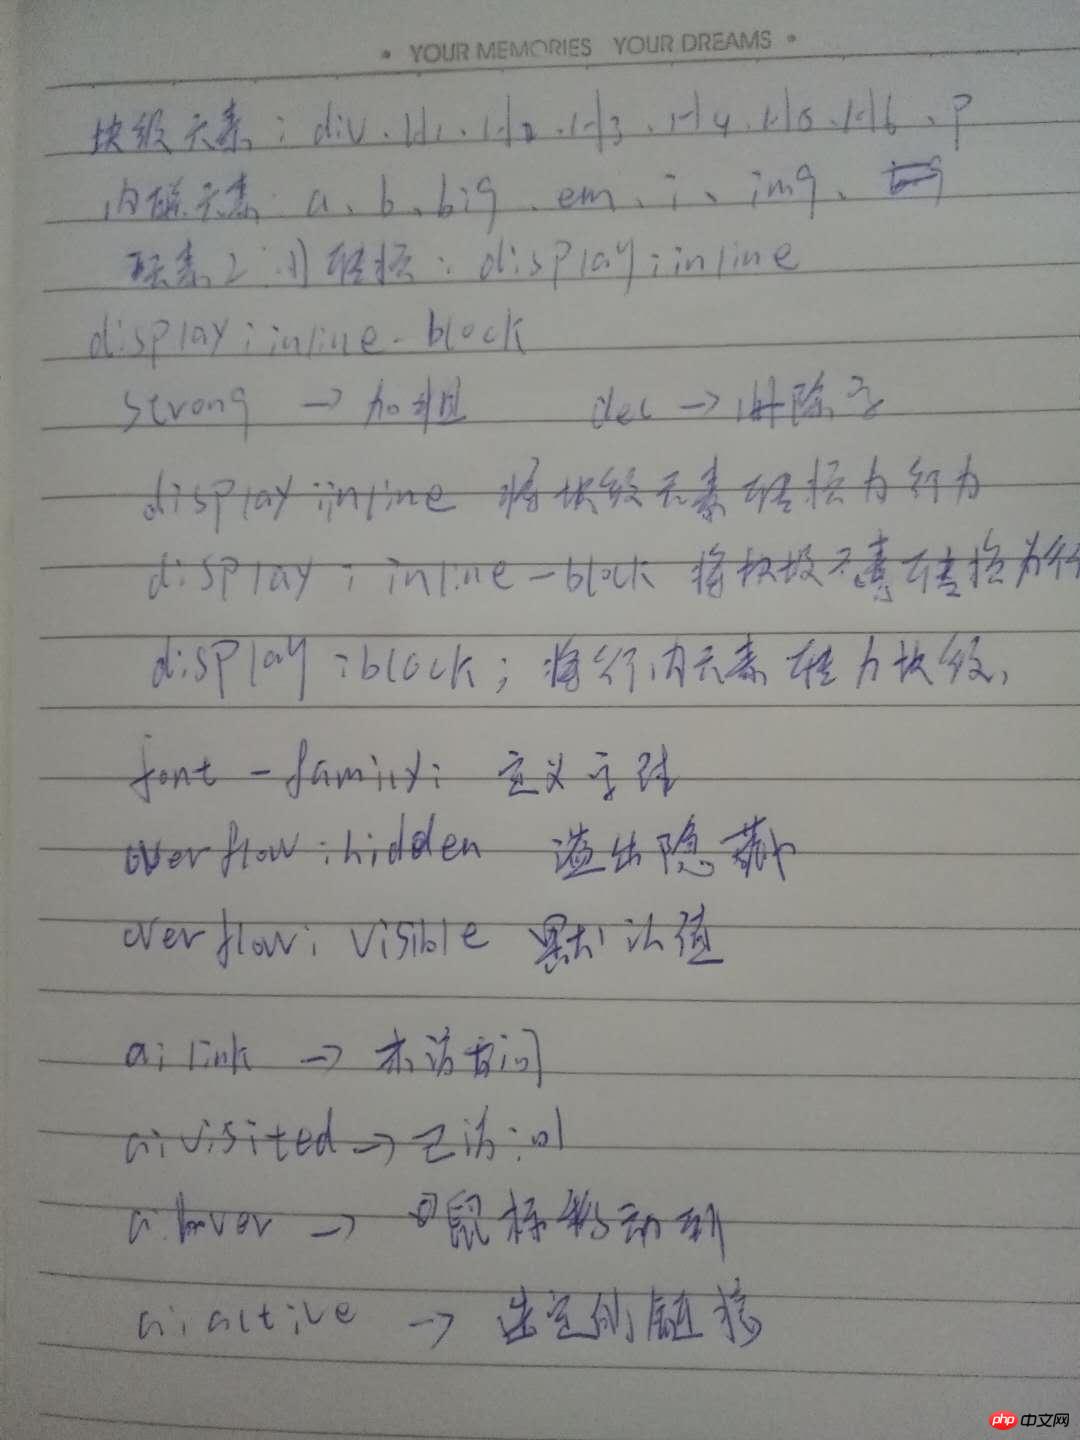 • YOUR MEMORIES YOUR DREAMS •
块级元素：div、H1、H2、H3、H4、H5、H6、P
内联元素：a、b、big、em、i、img、
元素之间转换：display:inline
display:inline-block
strong → 加粗 del → 删除字
display:inline 将块级元素转换为行为
display:inline-block 将块级元素转换为行
display:block; 将行内元素转为块级,
font-family: 定义字体
overflow:hidden 溢出隐藏
overflow: visible 默认值
a:link → 未访问
a:visited → 已访问
a:hover → 鼠标移动到
a:active → 选定的链接
php 中文网